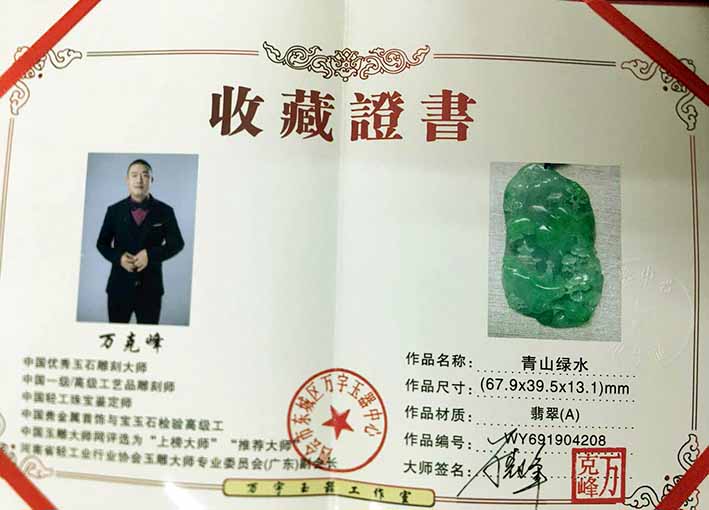 收藏證書
万克峰
中国优秀玉石雕刻大师
中国一级/高级工艺品雕刻师
中国轻工珠宝鉴定师
中国贵金属首饰与宝玉石检验高级工
中国玉雕大师网评选为“上榜大师”“推荐大师”
河南省轻工业行业协会玉雕大师专业委员会(广东)副会长
会市东城区万宇玉器中心
作品名称: 青山绿水
作品尺寸: (67.9x39.5x13.1)mm
作品材质: 翡翠(A)
作品编号: WY691904208
大师签名: 万克峰
万克峰
万宇玉器工作室